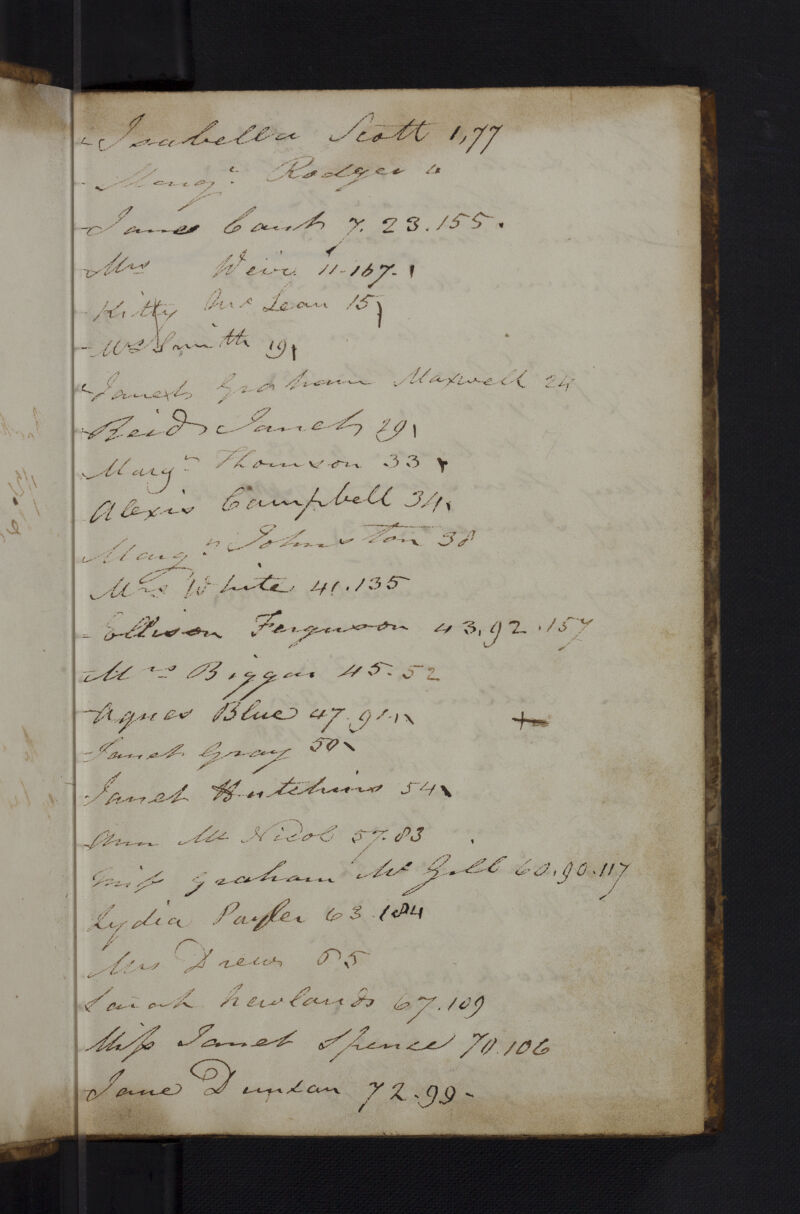 Isabella Scott 1, 77
Marg.t Rodger 6
Jane Cant 7. 23. 155.
Mrs Weir 11-167-
Kitty Mc Lean 15
Mrs Smith 19
Janet Graham Maxwell 24
Reid Janet 29
Marg.t Thomson 33
Alexis Campbell 34
Marg.t Johnston 38
Mrs White 41. 135
Ellison Ferguson 43. 92. 157
Mrs Biggar 45. 52
Agnes Blue 47. 91.
Janet Gray 50
Janet Hutchins 54
Ann Mc Nicol 57. 83
Miss Graham Mc Gill 60. 90. 117
Lydia 63. 184
Mrs Drew 65
Sarah Newlands 67. 109
Miss Janet Spence 70. 106
Jane Duncan 72. 99-